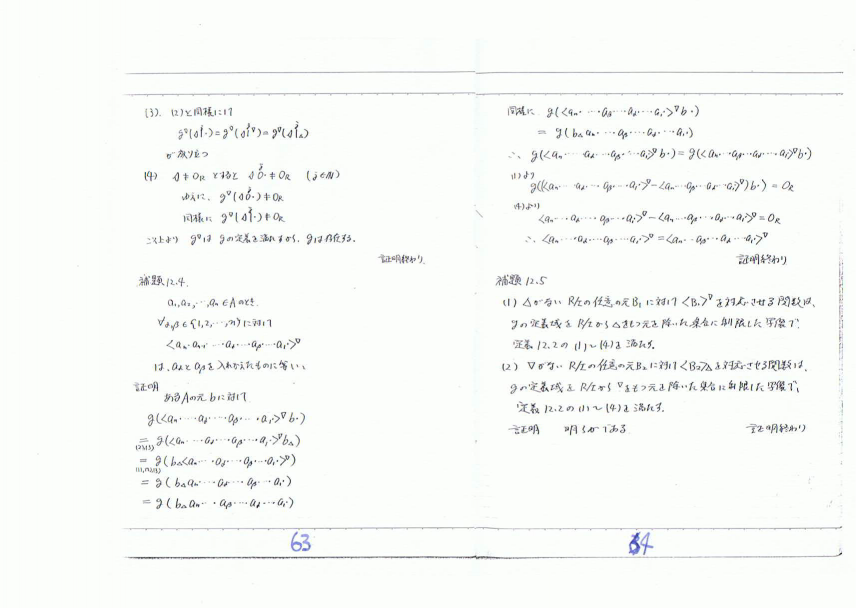 (3). (2)と同様にして
g⁰(Δ1̊・)=g⁰(Δ1̊∇)=g⁰(Δ1̊△)
が成り立つ
(4) Δ≠O_R とすると Δ0̊・≠O_R (j∈N)
ゆえに、g⁰(Δ0̊・)≠O_R
同様に g⁰(Δ1̊・)≠O_R
以上より g⁰は gの定義を満たすから、gは存在する。
証明終わり.
補題12.4.
a₁,a₂,…,aₙ∈Aのとき.
∀α,β∈{1,2,…,n}に対して
<aₙ・aₙ₋₁…aα…aβ…a₁・>∇
は、aαとaβを入れかえたものに等しい
証明
あるAの元bに対して
g(<aₙ・…aα…aβ…a₁・>∇b・)
=g(<aₙ・…aα…aβ…a₁・>∇b△)
(2)(3)
=g(b△<aₙ・…aα…aβ…a₁・>∇)
=g(b△aₙ・…aα…aβ…a₁・)
=g(b△aₙ・…aβ…aα…a₁・)
63
同様に g(<aₙ・…aβ…aα…a₁・>∇b・)
=g(b△aₙ・…aβ…aα…a₁・)
∴ g(<aₙ・…aα…aβ…a₁・>∇b・)=g(<aₙ・…aβ…aα…a₁・>∇b・)
(1)より
g((<aₙ・…aα…aβ…a₁・>∇−<aₙ・…aβ…aα…a₁・>∇)b・)=O_R
(4)より
<aₙ・…aα…aβ…a₁・>∇−<aₙ・…aβ…aα…a₁・>∇=O_R
∴ <aₙ・…aα…aβ…a₁・>∇=<aₙ・…aβ…aα…a₁・>∇
証明終わり
補題12.5
(1) △がない R/Iの任意の元B₁に対して<B₁>∇を対応させる関数は、
gの定義域を R/Iから△をもつ元を除いた集合に制限した写像で、
定義12.2の (1)~(4)を満たす。
(2) ∇がない R/Iの任意の元B₂に対して<B₂>△を対応させる関数は、
gの定義域を R/Iから∇をもつ元を除いた集合に制限した写像で、
定義12.2の(1)~(4)を満たす.
証明 明らかである 証明終わり
64